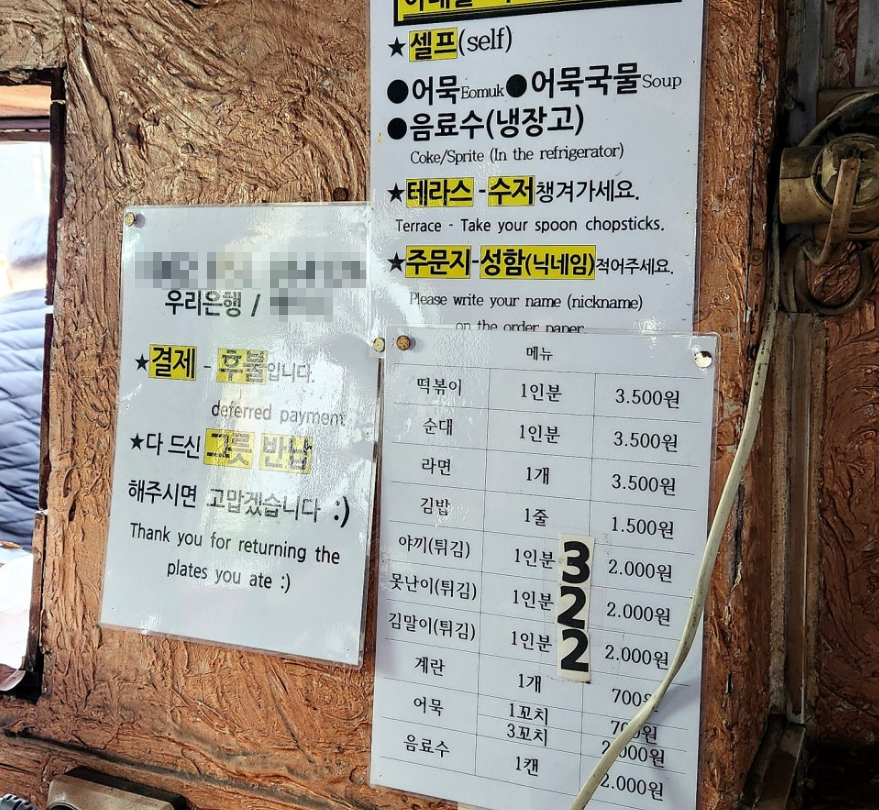 ★셀프(self)
●어묵Eomuk●어묵국물Soup
●음료수(냉장고)
Coke/Sprite (In the refrigerator)
★테라스-수저챙겨가세요.
Terrace - Take your spoon chopsticks.
★주문지-성함(닉네임)적어주세요.
Please write your name (nickname)
on the order paper
우리은행 /
★결제 - 후불입니다.
deferred payment
★다 드신 그릇 반납
해주시면 고맙겠습니다 :)
Thank you for returning the
plates you ate :)
메뉴
떡볶이 1인분 3.500원
순대 1인분 3.500원
라면 1개 3.500원
김밥 1줄 1.500원
야끼(튀김) 1인분 3 2.000원
못난이(튀김) 1인분 2 2.000원
김말이(튀김) 1인분 2 2.000원
계란 1개 700원
어묵 1꼬치 700원
3꼬치 2.000원
음료수 1캔 2.000원